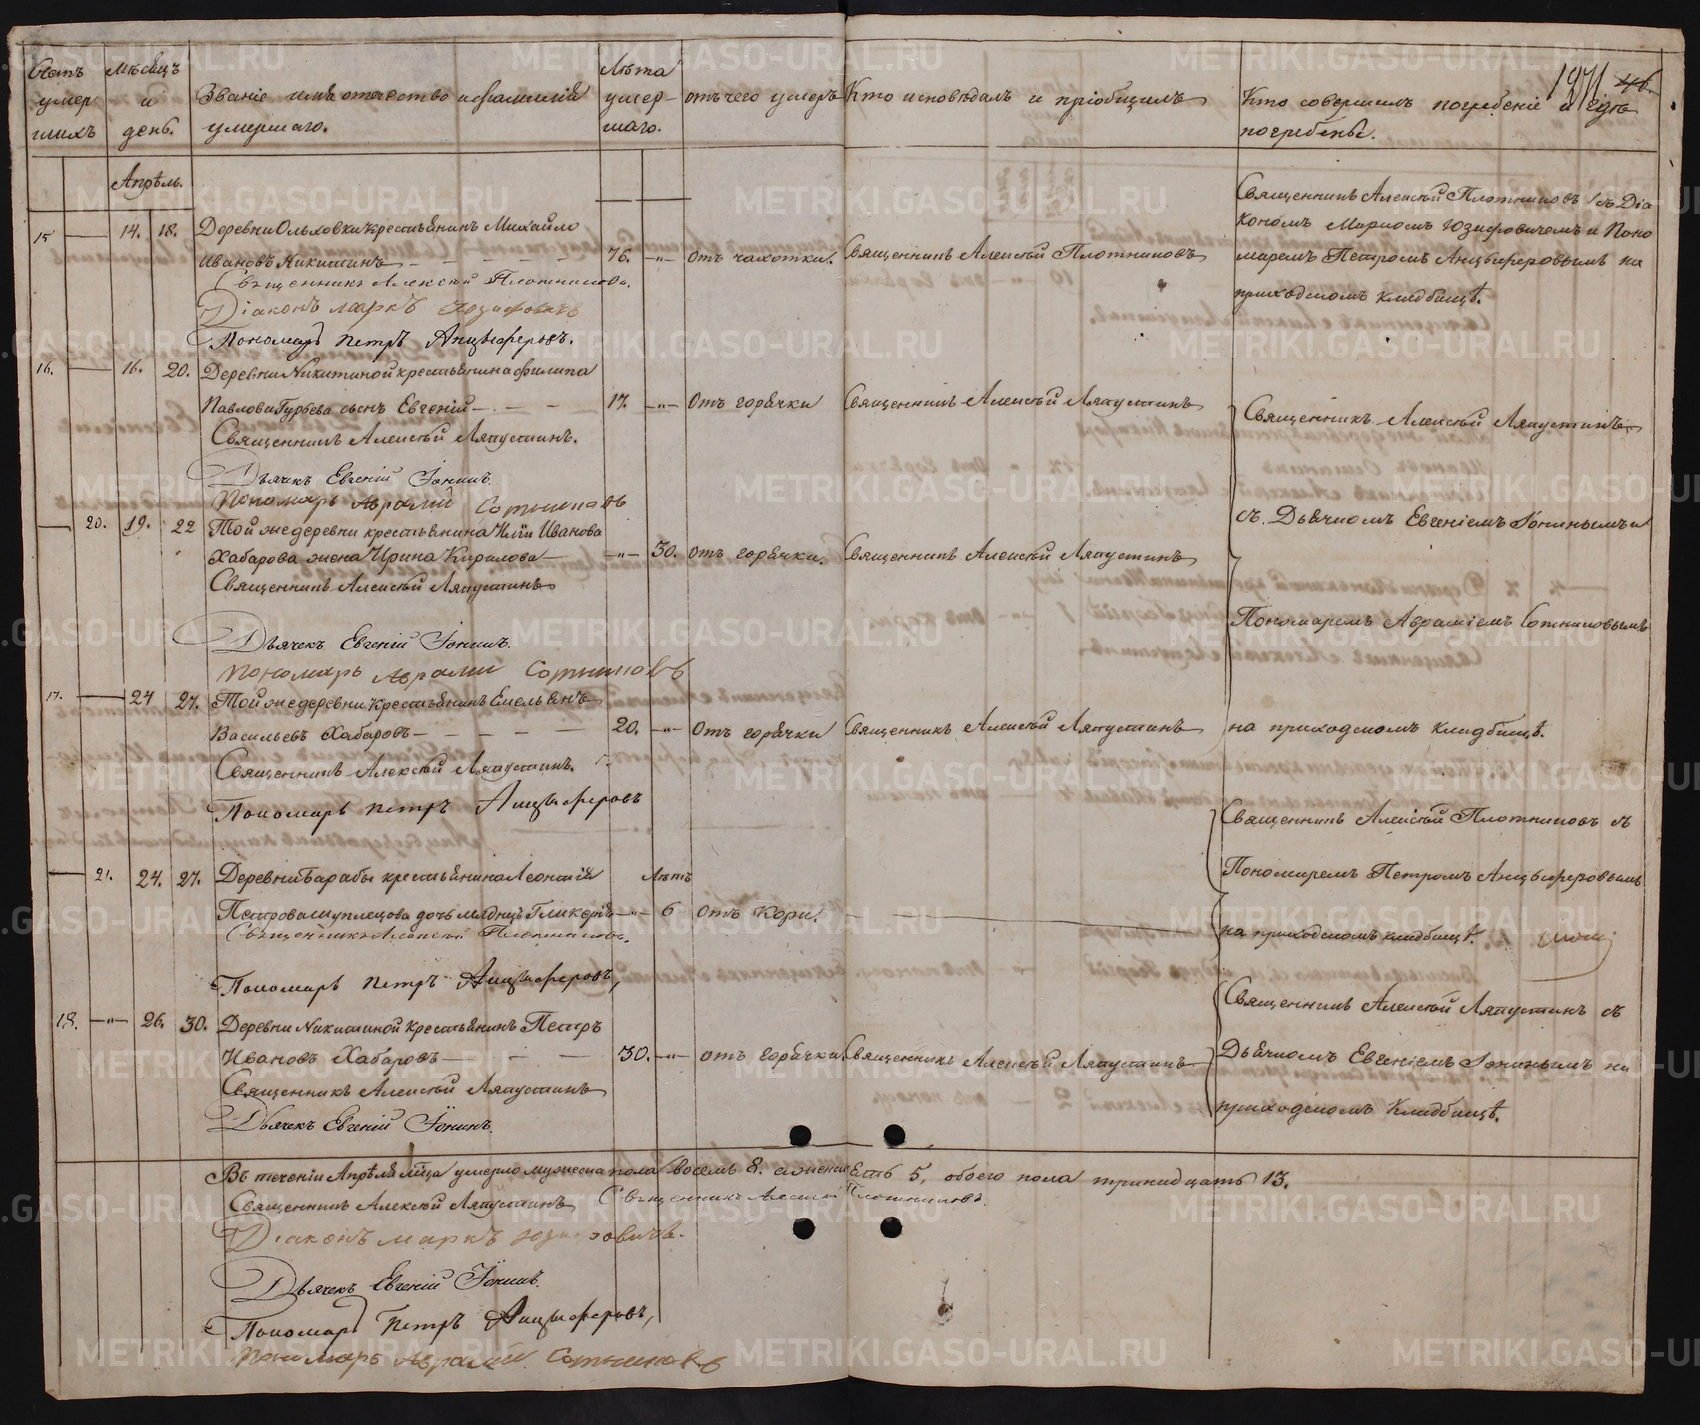 Счетъ умершихъ
мѣсяцъ и день.
Званіе имя отечество и фамилія умершаго.
Лѣта умершаго.
отъ чего умеръ
Кто исповѣдалъ и пріобщилъ
Кто совершилъ погребеніе и гдѣ погребены.
Апрѣль.
15 14. 18. Деревни Ольховки крестьянинъ Михайло
Ивановъ Никитинъ 76. отъ чахотки. Священникъ Алексѣй Плотниковъ
Священникъ Алексѣй Плотниковъ съ Діакономъ Маркомъ Юзифовичемъ и Пономаремъ Петромъ Анцыферовымъ на приходскомъ кладбищѣ.
Священникъ Алексѣй Плотниковъ.
Діаконъ Маркъ Юзифовичь
Пономарь Петръ Анцыферовъ.
16. 16. 20. Деревни Никитиной крестьянина Филипа
Павлова сынъ Евгеній 17. Отъ горячки Священникъ Алексѣй Ляпустинъ
Священникъ Алексѣй Ляпустинъ.
Дьячекъ Евгеній Іонинъ.
Пономарь Аврамій Сотниковъ
20. 19. 22 Той же деревни крестьянина Иванова
Хабарова жена Ирина Кирилова 30. отъ горячки. Священникъ Алексѣй Ляпустинъ
Священникъ Алексѣй Ляпустинъ
Дьячекъ Евгеній Іонинъ.
Пономарь Аврамій Сотниковъ
17. 24 27. Той же деревни крестьянинъ Емельянъ
Васильевъ Хабаровъ 20. Отъ горячки Священникъ Алексѣй Ляпустинъ
Священникъ Алексѣй Ляпустинъ
съ Дьячкомъ Евгеніемъ Іонинымъ и
Пономаремъ Аврамiемъ Сотниковымъ
на приходскомъ кладбищѣ.
Священникъ Алексѣй Ляпустинъ.
Пономарь Петръ Анцыферовъ
21. 24. 27. Деревни Барабы крестьянина Леонтія Лѣтъ
Петрова дочь младнцъ Гликерія 6 Отъ Кори.
Священникъ Алексѣй Плотниковъ съ
Пономаремъ Петромъ Анцыферовымъ
на приходскомъ кладбищѣ.
Священникъ Алексѣй Плотниковъ.
Пономарь Петръ Анцыферовъ,
18. 26. 30. Деревни Никитиной крестьянинъ Петръ
Ивановъ Хабаровъ 30. отъ горячки. Священникъ Алексѣй Ляпустинъ
Священникъ Алексѣй Ляпустинъ съ
Дьячкомъ Евгеніемъ Іонинымъ на
приходскомъ кладбищѣ.
Священникъ Алексѣй Ляпустинъ
Дьячекъ Евгеній Іонинъ.
Въ теченіи Апрѣля мца умерло мужеска пола восемь 8. а женска пять 5, обоего пола тринадцать 13.
Священникъ Алексѣй Ляпустинъ Священникъ Алексѣй Плотниковъ.
Діаконъ Маркъ Юзифовичь.
Дьячекъ Евгеній Іонинъ.
Пономарь Петръ Анцыферовъ,
Пономарь Аврамій Сотниковъ
METRIKI.GASO-URAL.RU